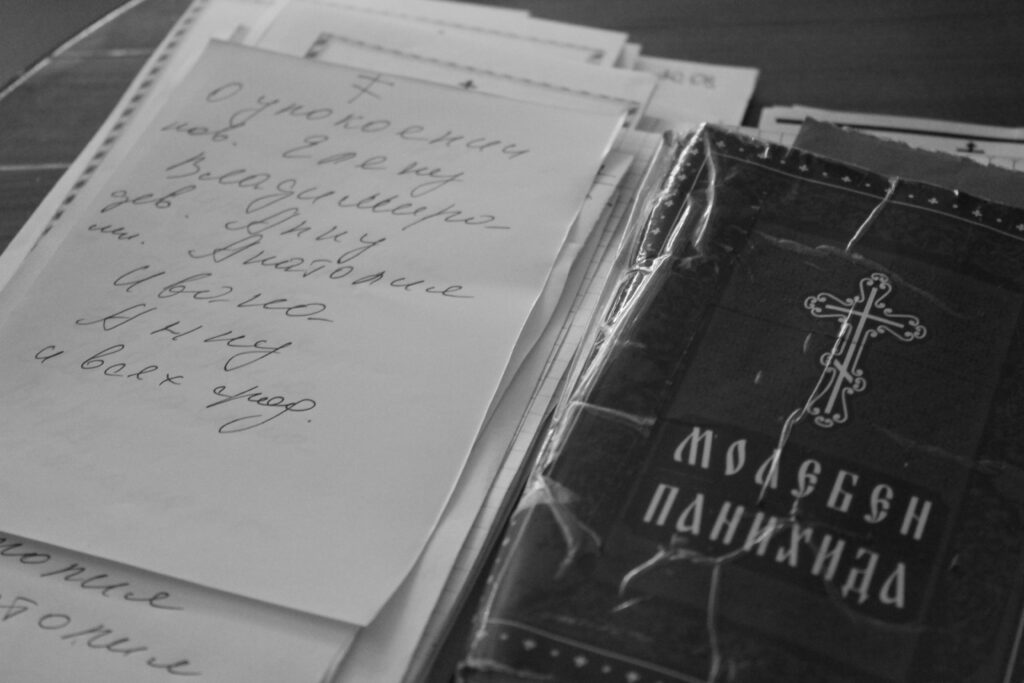 О упокоении
нов. Елену
Владимира
дев. Анну
мл. Анатолия
Ивана
Анну
и всех срод.
толия
МОЛЕБЕН
ПАНИХИДА